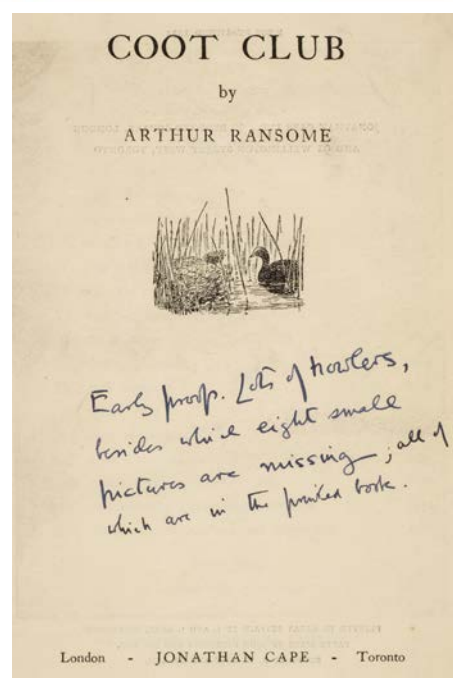 COOT CLUB
by
ARTHUR RANSOME
Early proof. Lots of howlers,
besides which eight small
pictures are missing; all of
which are in the printed book.
London - JONATHAN CAPE - Toronto